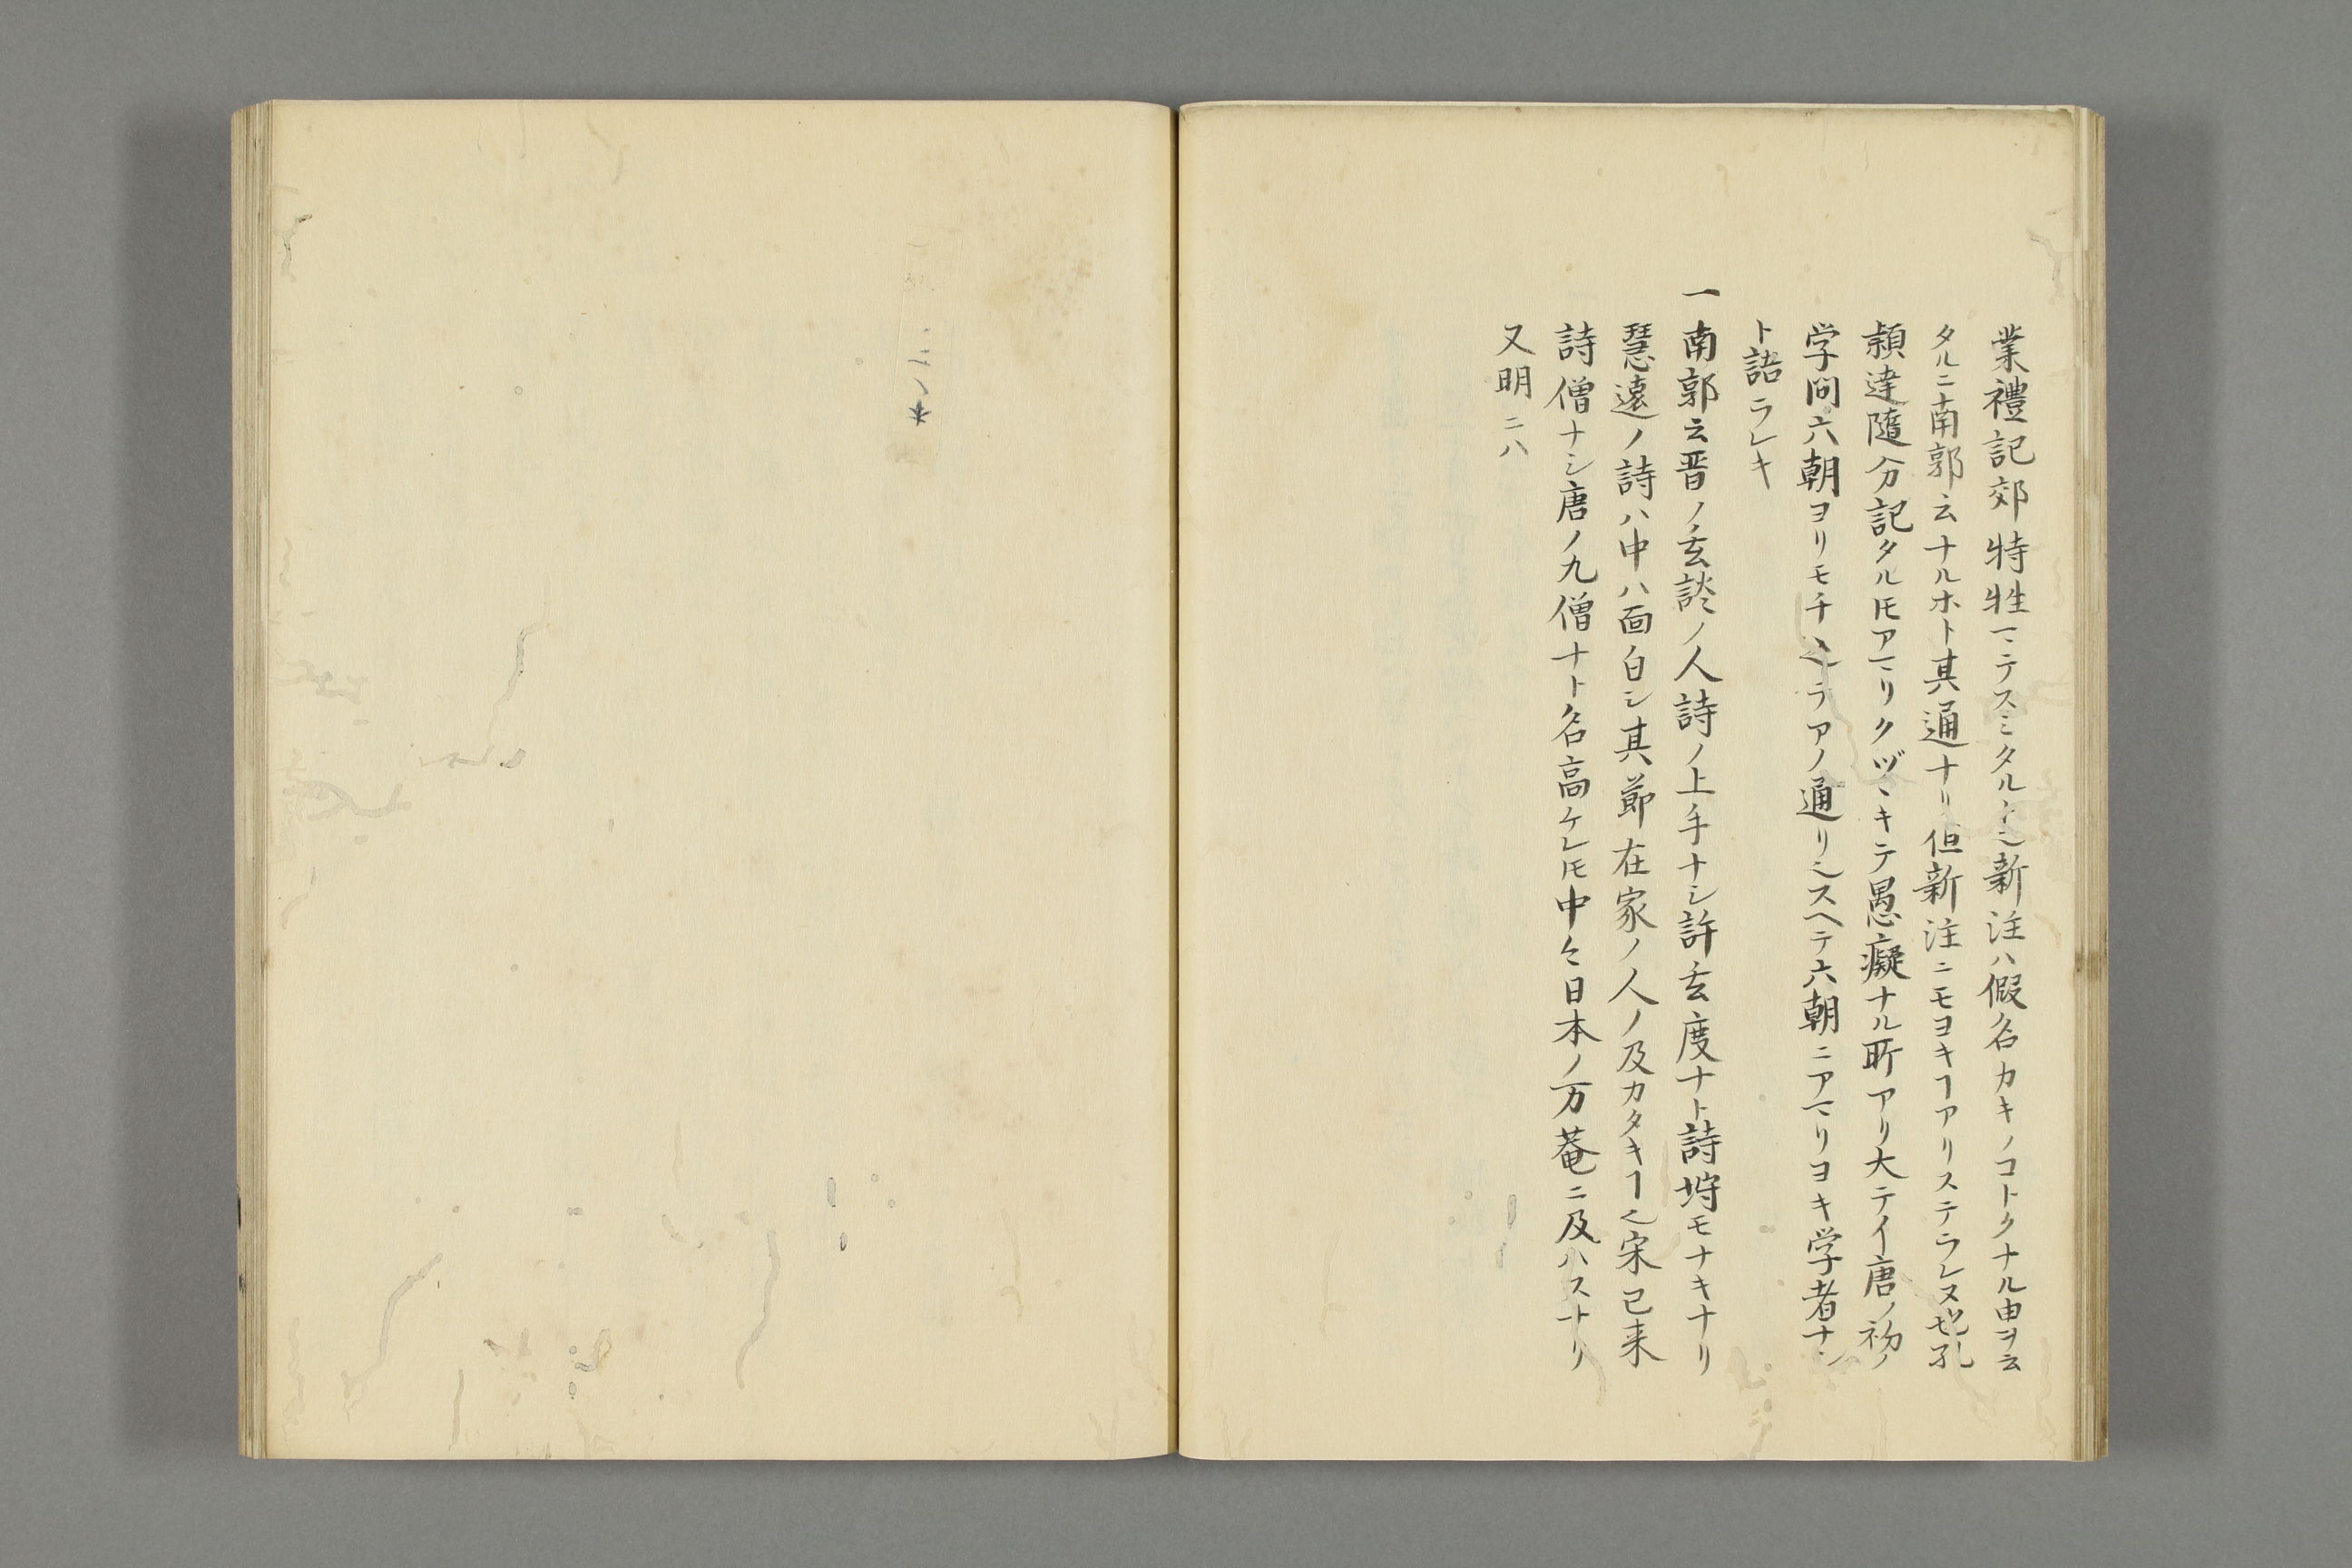 業禮記郊特牲マテスミタルト也新注ハ假名カキノコトクナル由ヲ云
タルニ南郭云ナルホト其通ナリ但新注ニモヨキヿアリステラレヌ也孔
頴達隨分記タルㇳモアマリクヅヽキテ愚癡ナル所アリ大テイ唐ノ初ノ
学問六朝ヨリモチ込ラアノ通リ也スヘテ六朝ニアマリヨキ学者ナシ
ト語ラレキ
一南郭云晋ノ玄談ノ人詩ノ上手ナシ許玄度ナト詩埒モナキナリ
慧遠ノ詩ハ中ハ面白シ其節在家ノ人ノ及カタキヿ也宋已来
詩僧ナシ唐ノ九僧ナト名高ケレㇳモ中々日本ノ万菴ニ及ハスナリ
又明ニハ